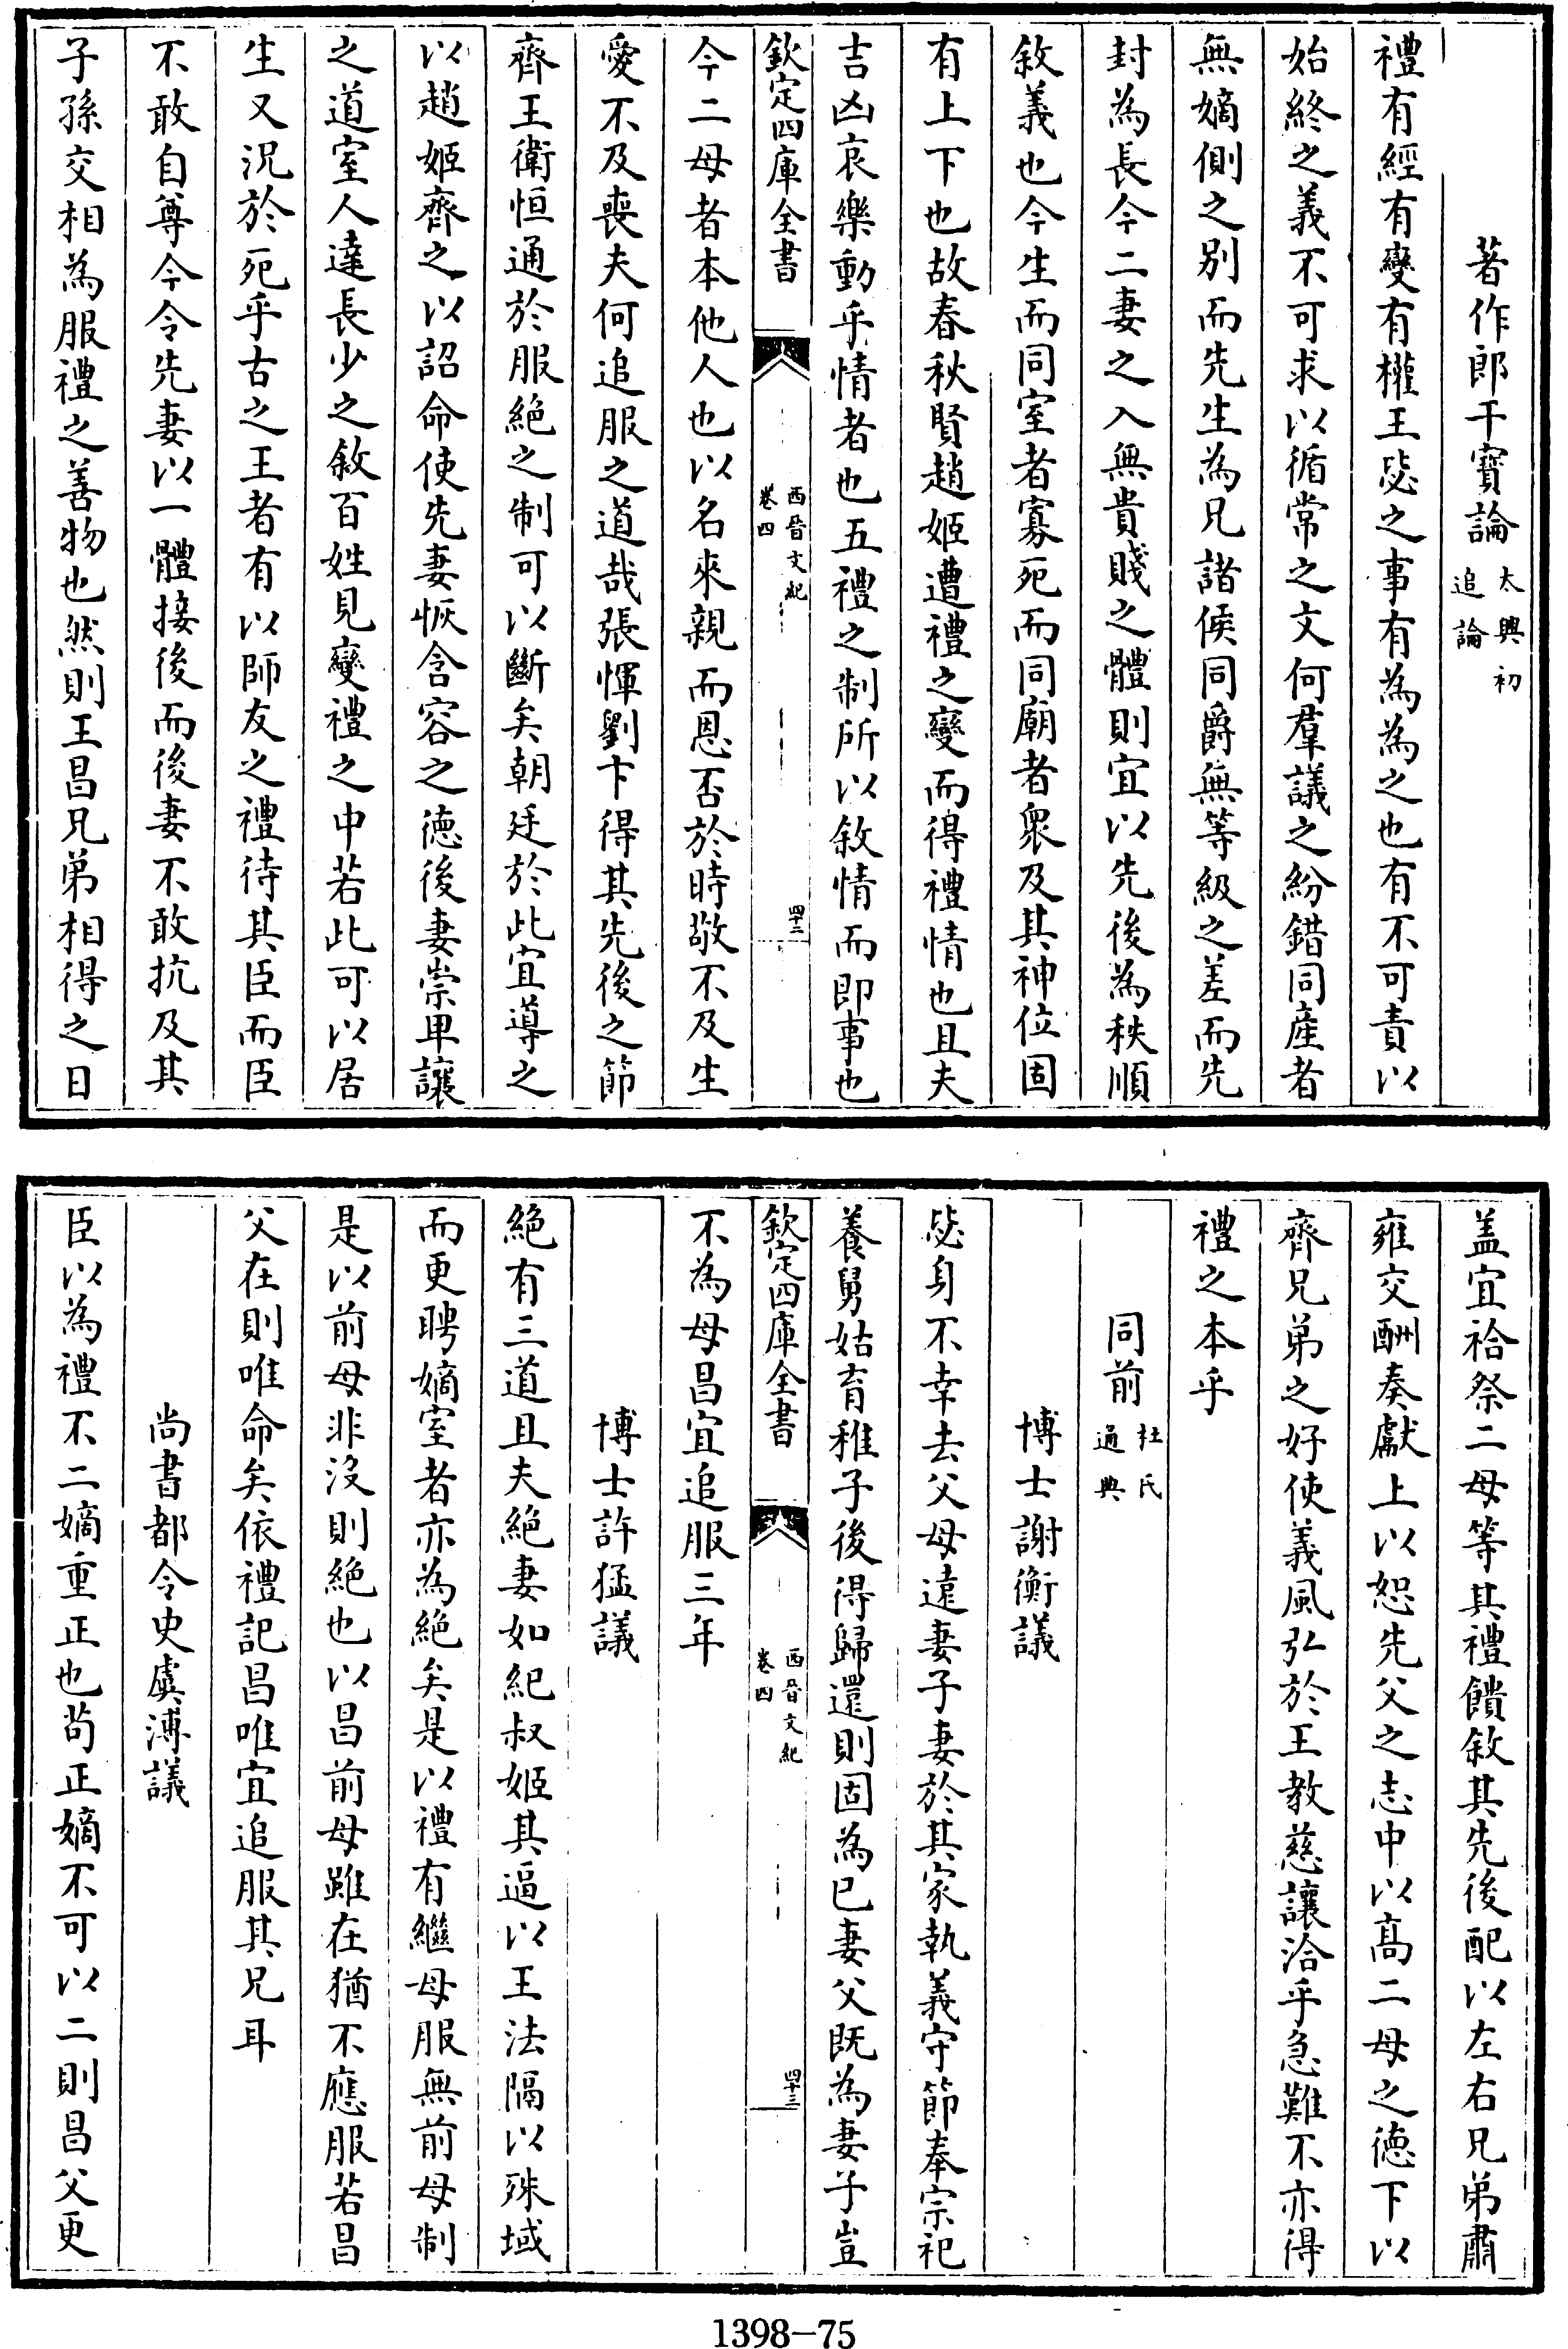 著作郎干寶論太興初追論
禮有經有變有權王毖之事有為為之也有不可責以
始終之義不可求以循常之文何羣議之紛錯同產者
無嫡側之別而先生為兄諸侯同爵無等級之差而先
封為長今二妻之入無貴賤之體則宜以先後為秩順
敘義也今生而同室者寡死而同廟者衆及其神位固
有上下也故春秋賢趙姬遭禮之變而得禮情也且夫
吉凶哀樂動乎情者也五禮之制所以敘情而即事也
欽定四庫全書 西晉文紀卷四 四十二
今二母者本他人也以名來親而恩否於時敬不及生
愛不及喪夫何追服之道哉張惲劉卞得其先後之節
齊王衛恒通於服絕之制可以斷矣朝廷於此宜導之
以趙姬齊之以詔命使先妻恢含容之德後妻崇卑讓
之道室人達長少之敘百姓見變禮之中若此可以居
生又況於死乎古之王者有以師友之禮待其臣而臣
不敢自尊今令先妻以一體接後而後妻不敢抗及其
子孫交相為服禮之善物也然則王昌兄弟相得之日
蓋宜祫祭二母等其禮饋敘其先後配以左右兄弟肅
雍交酬奏獻上以恕先父之志中以高二母之德下以
齊兄弟之好使義風弘於王教慈讓洽乎急難不亦得
禮之本乎
同前杜氏通典
博士謝衡議
毖身不幸去父母遠妻子妻於其家執義守節奉宗祀
養舅姑育稚子後得歸還則固為已妻父既為妻子豈
欽定四庫全書 西晉文紀卷四 四十三
不為母昌宜追服三年
博士許猛議
絕有三道且夫絕妻如紀叔姬其逼以王法隔以殊域
而更聘嫡室者亦為絕矣是以禮有繼母服無前母制
是以前母非沒則絕也以昌前母雖在猶不應服若昌
父在則唯命矣依禮記昌唯宜追服其兄耳
尚書都令史虞溥議
臣以為禮不二嫡重正也苟正嫡不可以二則昌父更
1398-75